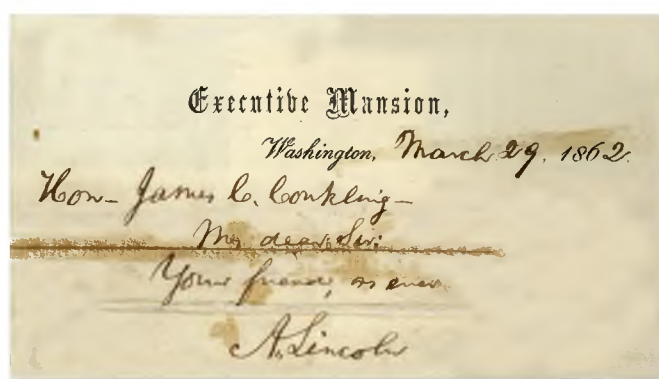 Executive Mansion,
Washington, March 29, 1862.
Hon- James C. Conkling-
My dear Sir:
Your friend, as ever
A. Lincoln